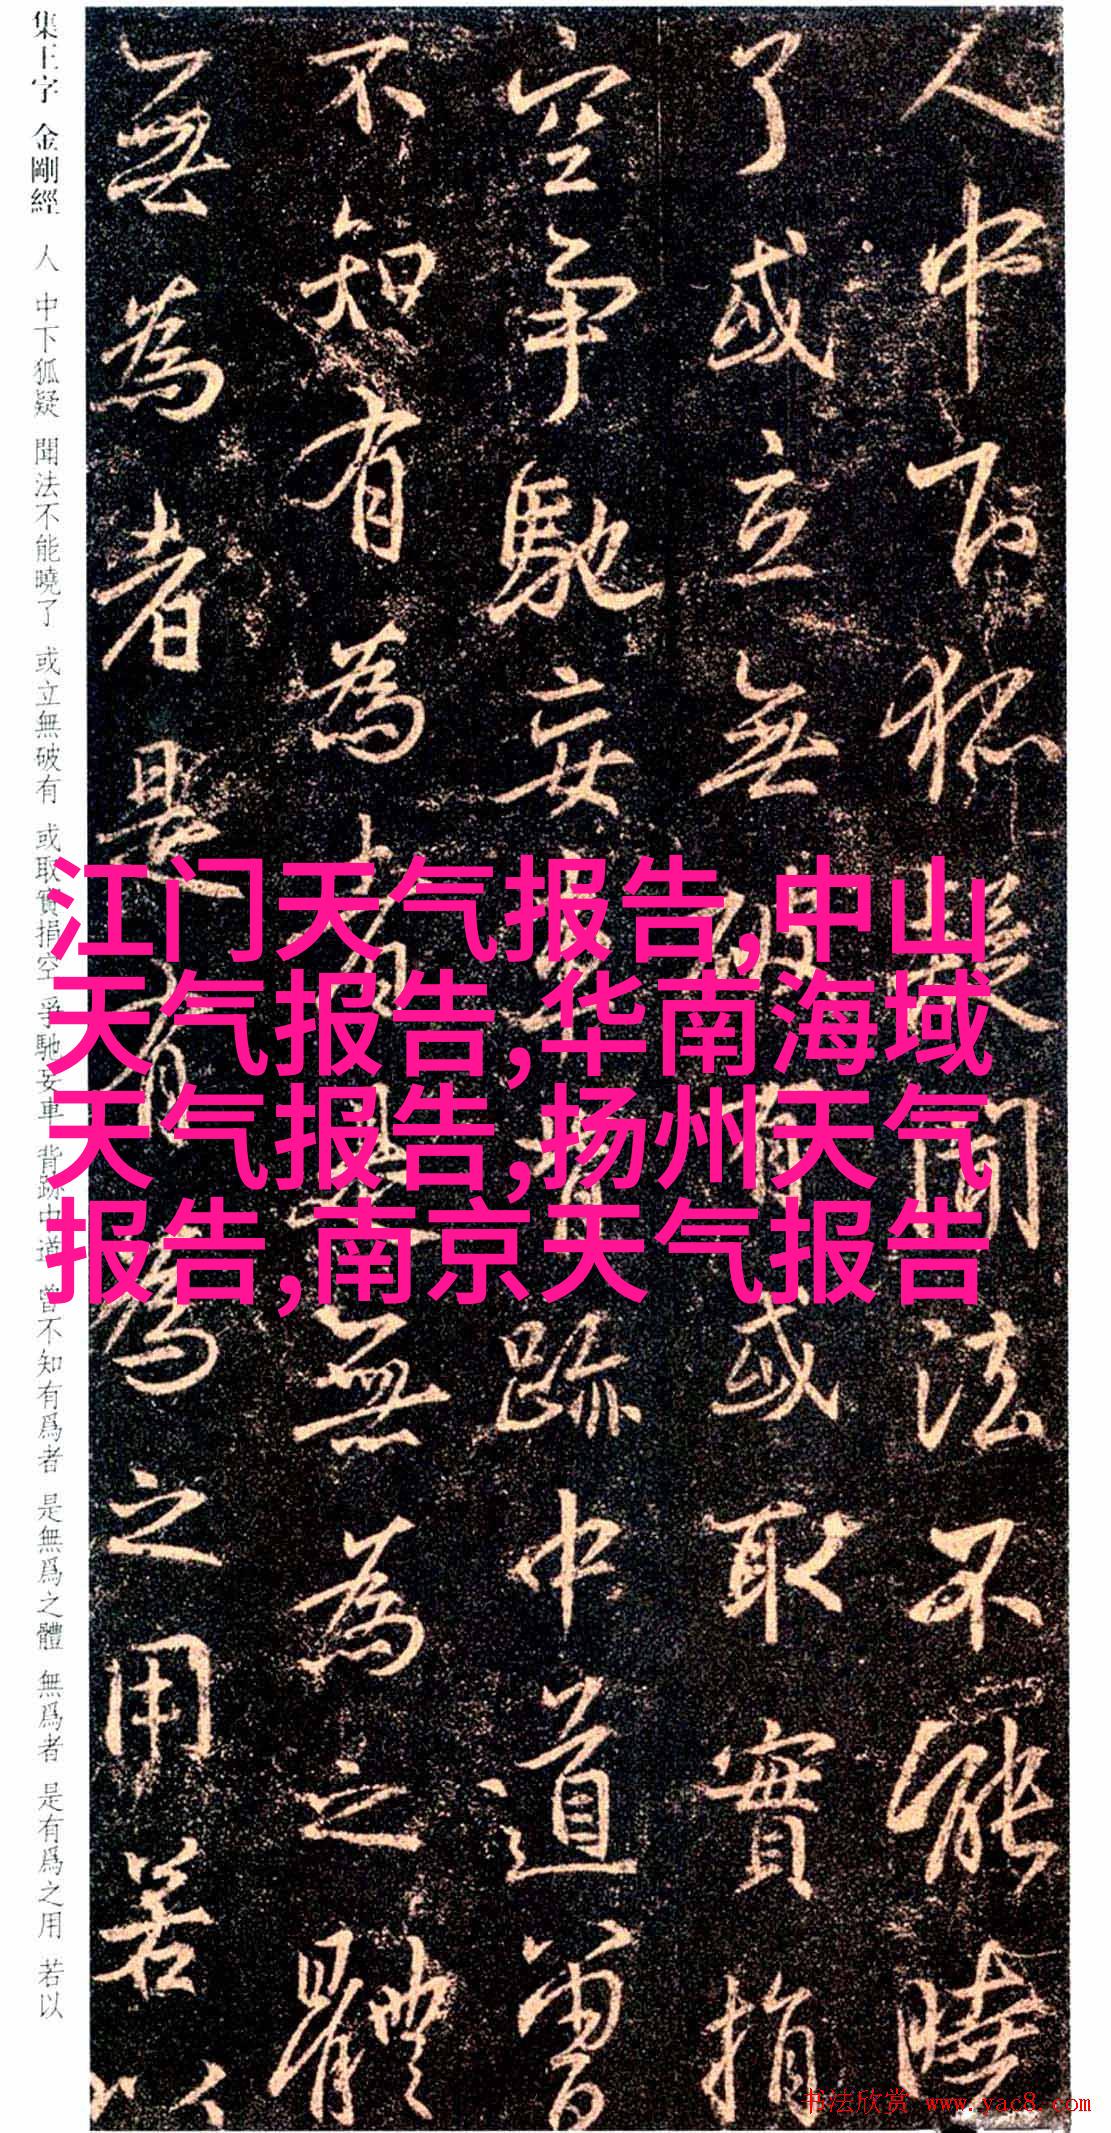 人中下狐疑聞法不能曉
了或立無破有或取實捐
空争馳妄車背跡中道曾
不知有為者是無為之體
無為者是有為之用若以
集王字 金剛經 人 中下狐疑 聞法不能曉了 或立無破有 或取實捐空 爭馳妄車 背跡中道 曾不知有爲者 是無爲之體 無爲者 是有爲之用 若以
江门天气报告,中山
天气报告,华南海域
天气报告,扬州天气
报告,南京天气报告
书法欣赏 www.yac8.com